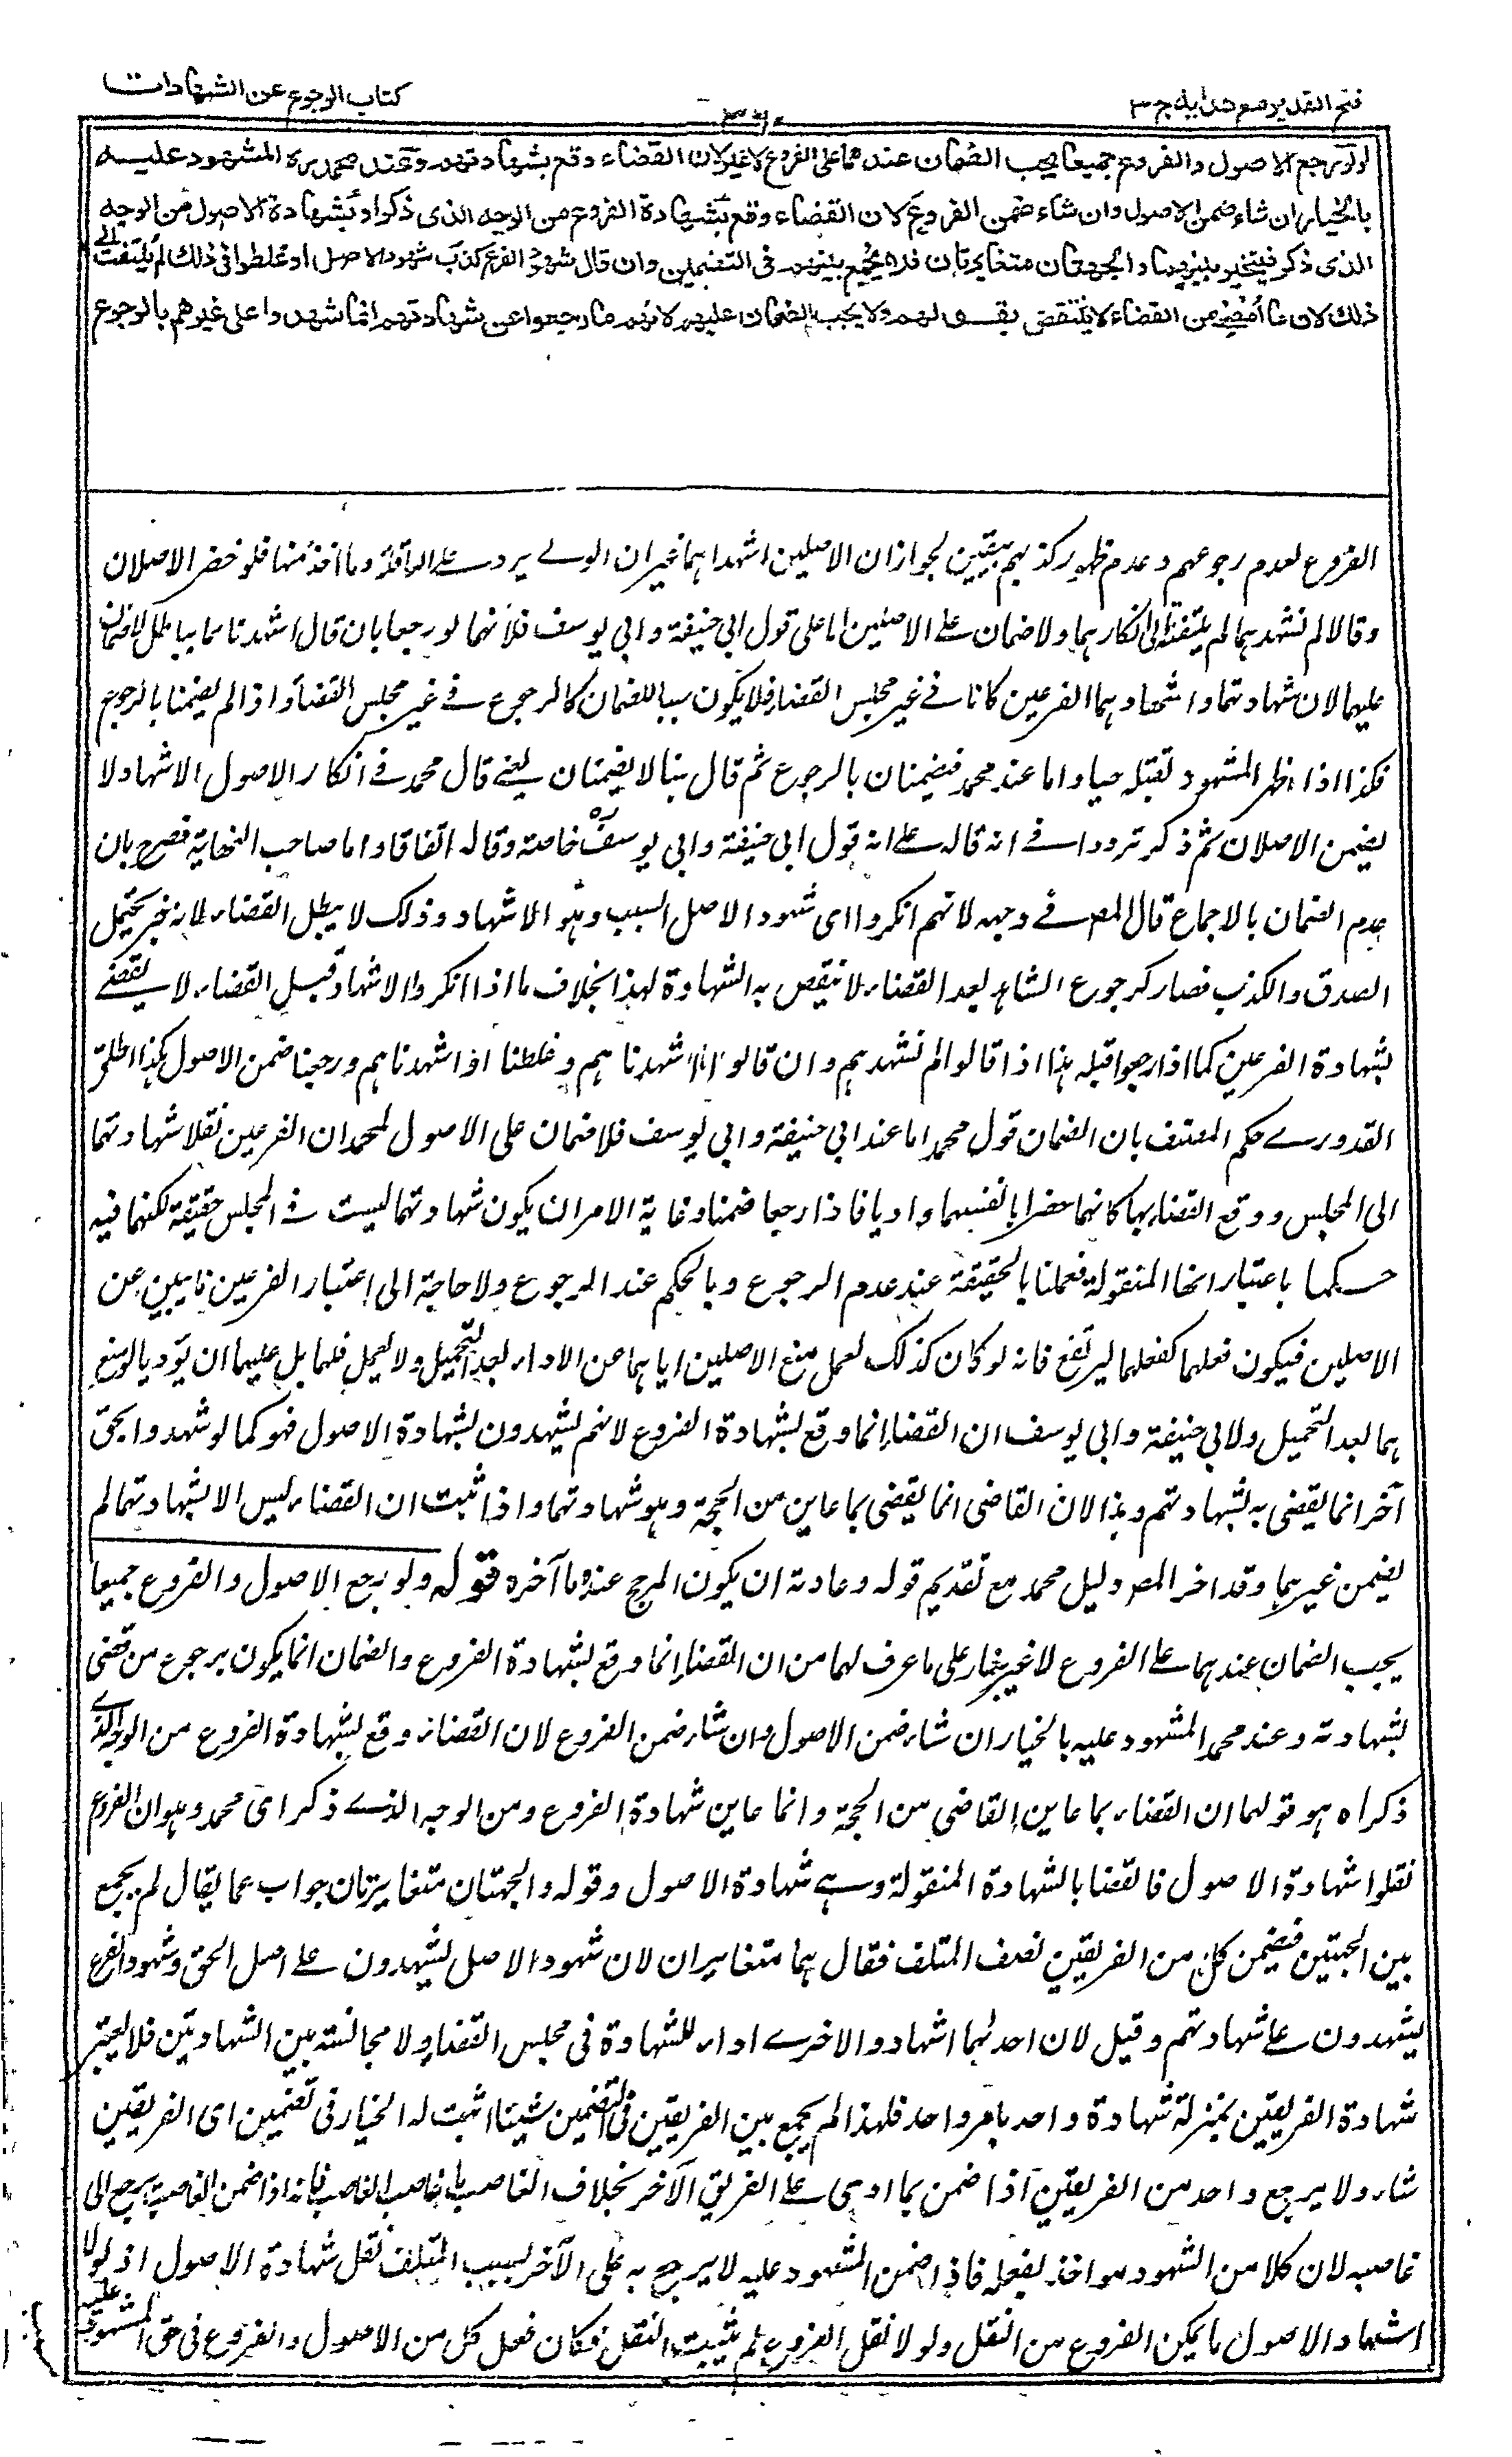 فتح القدير مع هدايه ج ٣
كتاب الرجوع عن الشهادات
ولو رجع الاصول والفروع جميعا يجب الضمان عندهما على الفروع لا غير لان القضاء وقع بشهادتهم وعند محمد ره المشهود عليه
بالخيار ان شاء ضمن الاصول وان شاء ضمن الفروع لان القضاء وقع بشهادة الفروع من الوجه الذى ذكرا وبشهادة الاصول من الوجه
الذى ذكر فيتخير بينهما والجهتان متغايرتان فلا يجمع بينهم فى التضمين وان قال شهود الفرع كذب شهود الاصل او غلطوا فى ذلك لم يلتفت الى
ذلك لان ما امضى من القضاء لا ينتقض بقولهم ولا يجب الضمان عليهم لانهم ما رجعوا عن شهادتهم انما شهدوا على غيرهم بالرجوع
الفروع لعدم رجوعهم وعدم ظهور كذبهم بيقين لجواز ان الاصلين اشهداهما غير ان الولي يرد على العاقلة ما اخذ منها فلو حضر الاصلان
وقالا لم نشهدهما لم يلتفت الى انكارهما ولا ضمان على الاصلين اما على قول ابى حنيفة وابى يوسف فلانهما لو رجعا بان قال اشهدناهما بباطل لا ضمان
عليهما لان شهادتهما واشهادهما الفرعين كانا في غير مجلس القضاء فلا يكون سببا للضمان كالرجوع في غير مجلس القضاء واذا لم يضمنا بالرجوع
فكذا اذا ظهر المشهود بقتله حيا واما عند محمد فيضمنان بالرجوع ثم قال هنا لا يضمنان يعنى قال محمد في انكار الاصول الاشهاد لا
يضمن الاصلان ثم ذكر ترددا في انه قاله على انه قول ابى حنيفة وابى يوسف ره خاصة وقاله اتفاقا واما صاحب النهاية فصرح بان
عدم الضمان بالاجماع قال المص في وجهه لانهم انكروا اى شهود الاصل السبب وهو الاشهاد وذلك لا يبطل القضاء لانه خبر يحتمل
الصدق والكذب فصار كرجوع الشاهد بعد القضاء لا ينقض به الشهادة لهذا بخلاف ما اذا انكروا الاشهاد قبل القضاء لا يقضى
بشهادة الفرعين كما اذا رجعوا قبله هذا اذا قالوا لم نشهدهم وان قالوا اشهدناهم وغلطنا او اشهدناهم ورجعنا ضمن الاصول هكذا اطلق
القدوري حكم المصنف بان الضمان قول محمد اما عند ابى حنيفة وابى يوسف فلا ضمان على الاصول لمحمد ان الفرعين نقلا شهادتهما
الى المجلس ووقع القضاء بها كانهما حضرا بانفسهما واديا فاذا رجعا ضمنا وغاية الامر ان يكون شهادتهما ليست في المجلس حقيقة لكنها فيه
حكما باعتبار انها المنقولة فعملنا بالحقيقة عند عدم الرجوع وبالحكم عند الرجوع ولا حاجة الى اعتبار الفرعين نايبين عن
الاصلين فيكون فعلهما كفعلهما ليرتفع فانه لو كان كذلك لعمل منع الاصلين اياهما عن الاداء بعد التحميل ولا يعمل فلهما بل عليهما ان يؤديا لو منع
هما بعد التحميل ولابى حنيفة وابى يوسف ان القضاء انما وقع بشهادة الفروع لانهم يشهدون بشهادة الاصول فهو كما لو شهدوا بحق
آخر انما يقضى به بشهادتهم وهذا لان القاضى انما يقضى بما عاين من الحجة وهو شهادتهما واذا ثبت ان القضاء ليس الا بشهادتهما لم
يضمن غيرهما وقد اخر المص دليل محمد مع تقديم قوله وعادته ان يكون المرجح عنده ما آخره قوله ولو رجع الاصول والفروع جميعا
يجب الضمان عندهما على الفروع لا غير بناء على ما عرف لهما من ان القضاء انما وقع بشهادة الفروع والضمان انما يكون برجوع من قضى
بشهادته وعند محمد المشهود عليه بالخيار ان شاء ضمن الاصول وان شاء ضمن الفروع لان القضاء وقع بشهادة الفروع من الوجه الذي
ذكراه هو قولهما ان القضاء بما عاين القاضى من الحجة وانما عاين شهادة الفروع ومن الوجه الذي ذكر اى محمد وهو ان الفروع
نقلوا شهادة الاصول فالقضاء بالشهادة المنقولة وهي شهادة الاصول وقوله والجهتان متغايرتان جواب عما يقال لم لم يجمع
بين الجهتين فيضمن كل من الفريقين نصف المتلف فقال هما متغايران لان شهود الاصل يشهدون على اصل الحق وشهود الفرع
يشهدون على شهادتهم وقيل لان احدهما اشهاد والاخرى اداء للشهادة فى مجلس القضاء ولا مجانسة بين الشهادتين فلا يعتبر
شهادة الفريقين بمنزلة شهادة واحد بامر واحد فلهذا لم يجمع بين الفريقين فى التضمين شيئا اثبت له الخيار فى تضمين اى الفريقين
شاء ولا يرجع واحد من الفريقين اذا ضمن بما ادى على الفريق الآخر بخلاف الغاصب مع غاصب الغاصب فانه اذا ضمن الغاصب يرجع الى
غاصبه لان كلا من الشهود مواخذ بفعله فاذا ضمن المشهود عليه لا يرجع به على الآخر لسبب المتلف نقل شهادة الاصول اذ لولا
اشهاد الاصول ما يمكن الفروع من النقل ولولا نقل الفروع لم يثبت النقل فكان فعل كل من الاصول والفروع فى حق المشهود عليه